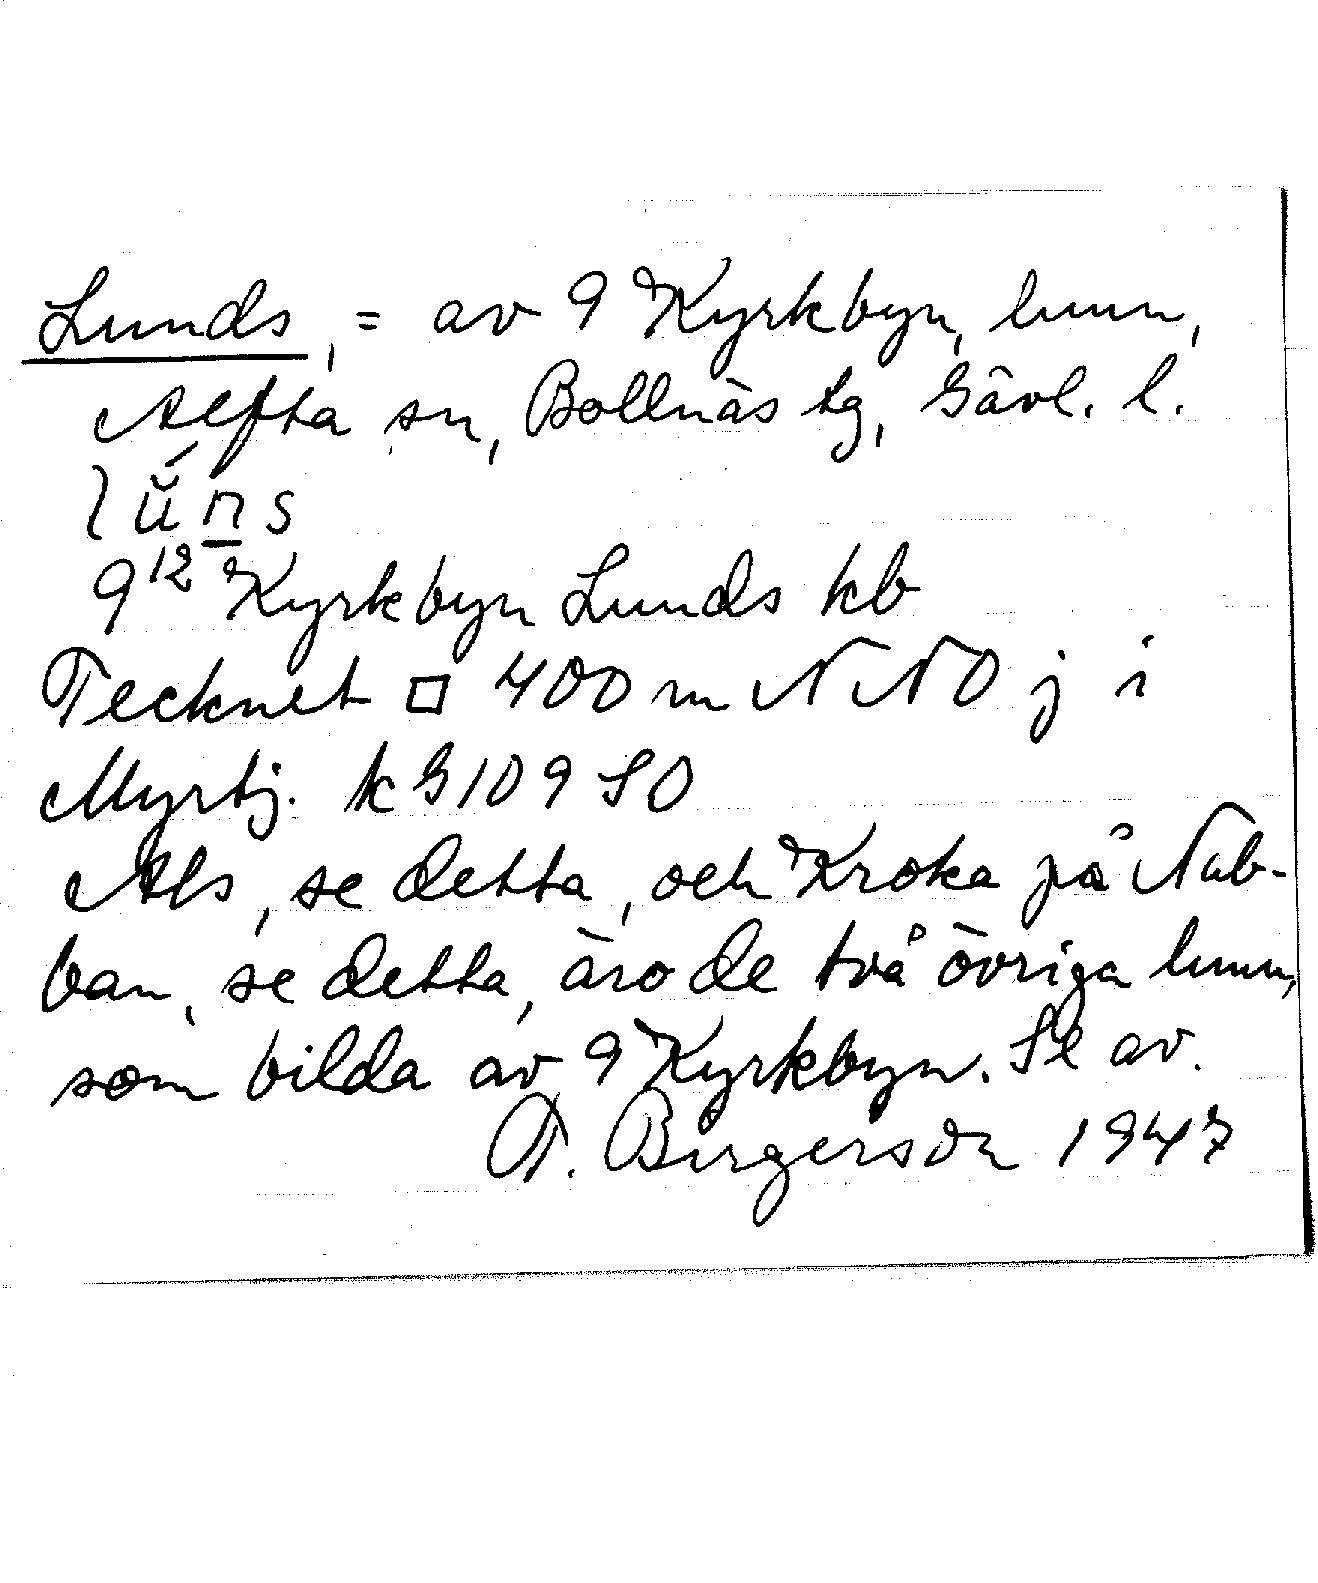 Lunds, = av 9 Kyrkbyn, hmn,
Alfta sn, Bollnäs tg, Gävl. l.
lŭ́n̲s
9¹² Kyrkbyn Lunds kb
Tecknet □ 400 m NNO j i
Myrtj. k G 109 SO
Als, se detta, och Kroka på Nab-
ban, se detta, äro de två övriga hmn,
som bilda av 9 Kyrkbyn. Se av.
F. Birgerson 1947